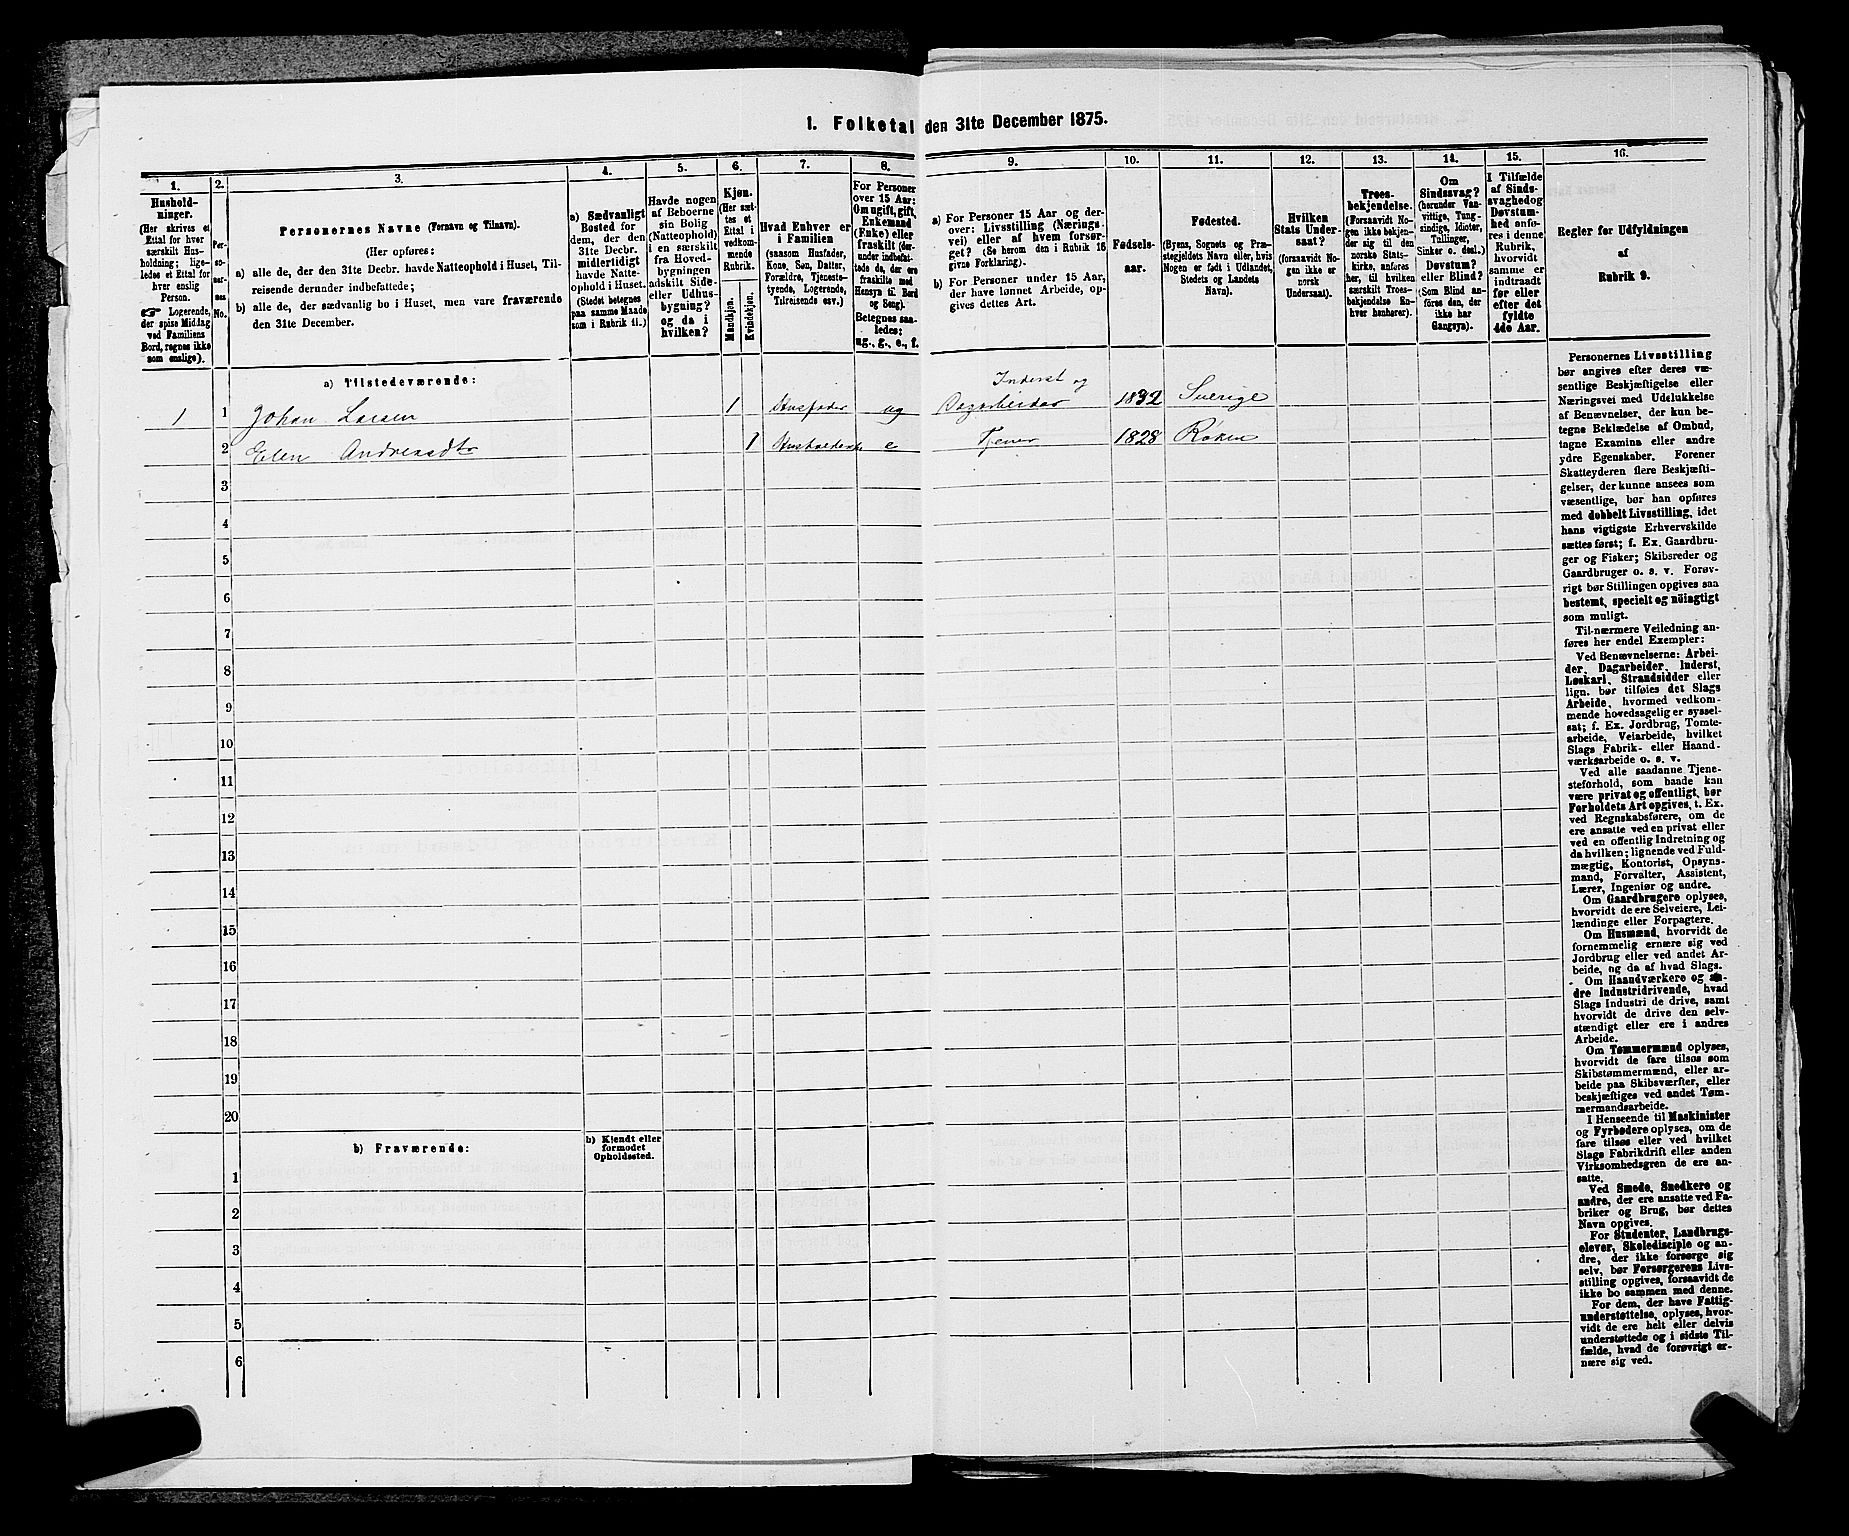 1. Folketal den 31te December 1875.
1.
Hushold-
ninger.
(Her skrives et
Ettal for hver
særskilt Hus-
holdning; lige-
ledes et Ettal for
hver enslig
Person.
☞ Logerende,
der spise Middag
ved Familiens
Bord, regnes ikke
som enslige).
2.
Per-
so-
ner-
nes
No.
3.
Personernes Navne (Fornavn og Tilnavn).
(Her opføres:
a) alle de, der den 31te Decbr. havde Natteophold i Huset, Til-
reisende derunder indbefattede;
b) alle de, der sædvanlig bo i Huset, men vare fraværende
den 31te December.
4.
a) Sædvanligt
Bosted for
dem, der den
31te Decbr.
midlertidigt
havde Natte-
ophold i Huset.
(Stedet betegnes
paa samme Maade
som i Rubrik 11.)
5.
Havde nogen
af Beboerne
sin Bolig
(Natteophold)
i en særskilt
fra Hoved-
bygningen
adskilt Side-
eller Udhus-
bygning?
og da i
hvilken?
6.
Kjøn.
(Her sæt-
tes et
Ettal i
vedkom-
mende
Rubrik.
Mandkjøn.
Kvindekjøn.
7.
Hvad Enhver er
i Familien
(saasom Husfader,
Kone, Søn, Datter,
Forældre, Tjeneste-
tyende, Logerende,
Tilreisende osv.)
8.
For Personer
over 15 Aar:
Om ugift, gift,
Enkemand
(Enke) eller
fraskilt (der-
under indbefat-
tede de, der ere
fraskilte med
Hensyn til Bord
og Seng).
Betegnes saa-
ledes:
ug., g., e., f.
9.
a) For Personer 15 Aar og der-
over: Livsstilling (Nærings-
vei) eller af hvem forsør-
get? (Se herom den i Rubrik 16
givne Forklaring).
b) For Personer under 15 Aar,
der have lønnet Arbeide, op-
gives dettes Art.
10.
Fødsels-
aar.
11.
Fødested.
(Byens, Sognets og Præ-
stegjeldets Navn eller, hvis
Nogen er født i Udlandet,
Stedets og Landets
Navn).
12.
Hvilken
Stats Under-
saat?
(forsaavidt No-
gen ikke er
norsk
Undersaat).
13.
Troes-
bekjendelse.
(Forsaavidt No-
gen ikke bekjen-
der sig til den
norske Stats-
kirke, anføres
her, til hvilken
særskilt Troes-
bekjendelse En-
hver henhører).
14.
Om
Sindssvag?
(herunder Van-
vittige, Tung-
sindige, Idioter,
Tullinger,
Sinker o. desl.)
Døvstum?
eller Blind?
(Som Blind an-
føres den, der
ikke har
Gangsyn).
15.
I Tilfælde
af Sinds-
svaghed og
Døvstum-
hed anfø-
res i denne
Rubrik,
hvorvidt
samme er
indtraadt
før eller
efter det
fyldte
4de Aar.
16.
Regler for Udfyldningen
af
Rubrik 9.
a) Tilstedeværende:
1 1 Johan Larsen 1 Husfader ug Inderst og Dagarbeider 1832 Sverige
2 Elen Andreasdtr 1 Husholderske e Tjener 1828 Røken
3
4
5
6
7
8
9
10
11
12
13
14
15
16
17
18
19
20
b) Fraværende:
b) Kjendt eller
formodet
Opholdssted.
1
2
3
4
5
6
Personernes Livsstilling
bør angives efter deres væ-
sentlige Beskjæftigelse eller
Næringsvei med Udelukkelse
af Benævnelser, der kun be-
tegne Beklædelse af Ombud,
tagne Examina eller andre
ydre Egenskaber. Forener
Skatteyderen flere Beskjæfti-
gelser, der kunne ansees som
væsentlige, bør han opføres
med dobbelt Livsstilling, idet
hans vigtigste Erhvervskilde
sættes først; f. Ex. Gaardbru-
ger og Fisker; Skibsreder og
Gaardbruger o. s. v. Forøv-
rigt bør Stillingen opgives saa
bestemt, specielt og nöiagtigt
som muligt.
Til nærmere Veiledning an-
føres her endel Exempler:
Ved Benævnelserne: Arbei-
der, Dagarbeider, Inderst,
Løskarl, Strandsidder eller
lign. bør tilføies det Slags
Arbeide, hvormed vedkom-
mende hovedsagelig er syssel-
sat; f. Ex. Jordbrug, Tomte-
arbeide, Veiarbeide, hvilket
Slags Fabrik- eller Haand-
værksarbeide o. s. v.
Ved alle saadanne Tjene-
steforhold, som baade kan
være privat og offentligt, bør
Forholdets Art opgives, t. Ex.
ved Regnskabsførere, om de
ere ansatte ved en privat eller
ved en offentlig Indretning og
da hvilken; lignende ved Fuld-
mægtig, Kontorist, Opsyns-
mand, Forvalter, Assistent,
Lærer, Ingeniør og andre.
Om Gaardbrugere oplyses,
hvorvidt de ere Selveiere, Lei-
lændinge eller Forpagtere.
Om Husmænd, hvorvidt de
fornemmelig ernære sig ved
Jordbrug eller ved andet Ar-
beide, og da af hvad Slags.
Om Haandværkere og an-
dre Industridrivende, hvad
Slags Industri de drive, samt
hvorvidt de drive den selv-
stændigt eller ere i andres
Arbeide.
Om Tømmermænd oplyses,
hvorvidt de fare tilsøs som
Skibstømmermænd, eller ar-
beide paa Skibsværfter, eller
beskjæftiges ved andet Tøm-
mermandsarbeide.
I Henseende til Maskinister
og Fyrbødere oplyses, om de
fare tilsøs eller ved hvilket
Slags Fabrikdrift eller anden
Virksomhedsgren de ere an-
satte.
Ved Smede, Snedkere og
andre, der ere ansatte ved Fa-
briker og Brug, bør dettes
Navn opgives.
For Studenter, Landbrugs-
elever, Skoledisciple og an-
dre, der ikke forsørge sig
selv, bør Forsørgerens Livs-
stilling opgives, forsaavidt de
ikke bo sammen med denne.
For dem, der have Fattig-
understøttelse, oplyses, hvor-
vidt de ere helt eller delvis
understøttede og i sidste Til-
fælde, hvad de forøvrigt er-
nære sig ved.